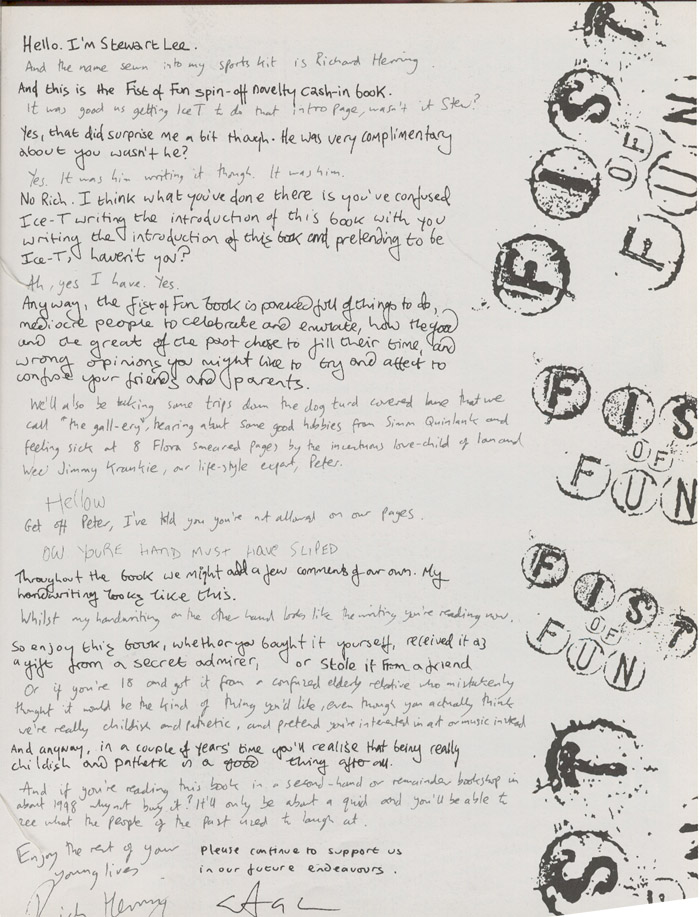 Hello. I'm Stewart Lee.
And the name sewn into my sports kit is Richard Herring.
And this is the Fist of Fun spin-off novelty cash-in book.
It was good us getting Ice T to do that intro page, wasn't it Stew?
Yes, that did surprise me a bit though. He was very complimentary
about you wasn't he?
Yes. It was him writing it though. It was him.
No Rich. I think what you've done there is you've confused
Ice-T writing the introduction of this book with you
writing the introduction of this book and pretending to be
Ice-T, haven't you?
Ah, yes I have. Yes.
Anyway, the Fist of Fun book is packed full of things to do,
mediocre people to celebrate and emulate, how the good
and the great of the past chose to fill their time, and
wrong opinions you might like to try and affect to
confuse your friends and parents.
We'll also be taking some trips down the dog turd covered lane that we
call "the gall-ery", hearing about some good hobbies from Simon Quinlank and
feeling sick at 8 Flora smeared pages by the incestuous love-child of Ian and
Wee Jimmy Krankie, our life-style expert, Peter.
Hellow
Get off Peter, I've told you you're not allowed on our pages.
OW YOURE HAND MUST HAVE SLIPED
Throughout the book we might add a few comments of our own. My
handwriting looks like this.
Whilst my handwriting on the other hand looks like the writing you're reading now.
So enjoy this book, whether you bought it yourself, received it as
a gift from a secret admirer, or stole it from a friend
Or if you're 18 and got it from a confused elderly relative who mistakenly
thought it would be the kind of thing you'd like, even though you actually think
we're really childish and pathetic, and pretend you're interested in art or music instead
And anyway, in a couple of years' time you'll realise that being really
childish and pathetic is a good thing after all.
And if you're reading this book in a second-hand or remainder bookshop in
about 1998 why not buy it? It'll only be about a quid and you'll be able to
see what the people of the past used to laugh at.
Enjoy the rest of your
young lives
Rich Herring
Please continue to support us
in our future endeavours.
FIST
OF
FUN
FIST
OF
FUN
FIST
OF
FUN
ST